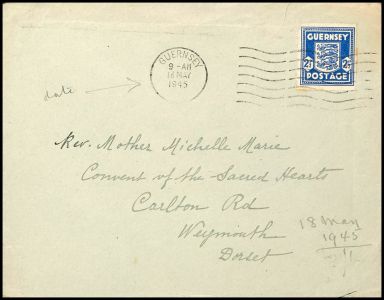 GUERNSEY
9 - AM
18 MAY
1945
GUERNSEY
2½d 2½d
POSTAGE
date
Rev. Mother Michelle Marie
Convent of the Sacred Hearts
Carlton Rd
Weymouth
Dorset
18 May
1945